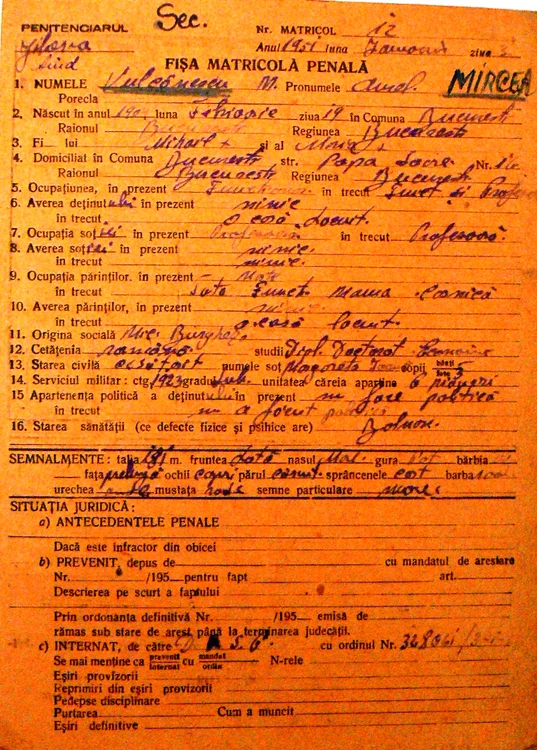 Sec.
PENITENCIARUL
Nr. MATRICOL 12
Jilava Anul 1951 luna ziua
Sud
FIȘA MATRICOLĂ PENALĂ
1. NUMELE Vulcănescu M. Pronumele Aurel. MIRCEA
Porecla
2. Născut în anul luna Februarie ziua 19 în Comuna București
Raionul București Regiunea București
3. Fi lui Mihail și al Maria
4. Domiciliat în Comuna București str. Popa Soare Nr. 16
Raionul București Regiunea București
5. Ocupațiunea, în prezent în trecut Funct și Profesor
6. Averea deținutului în prezent nimic
în trecut o casă locuit.
7. Ocupația soției în prezent Profesoară în trecut Profesoară.
8. Averea soției în prezent nimic.
în trecut nimic.
9. Ocupația părinților. în prezent –
în trecut Tata Funct Mama Casnică
10. Averea părinților, în prezent nimic.
în trecut o casă locuit.
11. Origina socială Mic Burghez
12. Cetățenia română studii Dipl. Doctorat
13. Starea civilă căsătorit numele soț Margareta copii băeți fete 3
14. Serviciul militar: ctg. 1923 gradul Sub. unitatea căreia aparține 6
15 Apartenența politică a deținutului în prezent nu face politică
în trecut n a făcut politică
16. Starea sănătății (ce defecte fizice și psihice are) Bolnav.
SEMNALMENTE: talia 181 m. fruntea lată nasul gura bărbia
fața prelungă ochii căprui părul cărunt. sprâncenele barba
urechea mustața rade semne particulare
SITUAȚIA JURIDICĂ:
a) ANTECEDENTELE PENALE
Dacă este infractor din obicei
b) PREVENIT, depus de cu mandatul de arestare
Nr. /195 pentru fapt art.
Descrierea pe scurt a faptului
Prin ordonanța definitivă Nr. /195 emisă de
rămas sub stare de arest până la terminarea judecății.
c) INTERNAT, de către cu ordinul Nr.
Se mai menține ca prevenit internat cu mandat ordin N-rele
Eșiri provizorii
Reprimiri din eșiri provizorii
Pedepse disciplinare
Purtarea Cum a muncit
Eșiri definitive